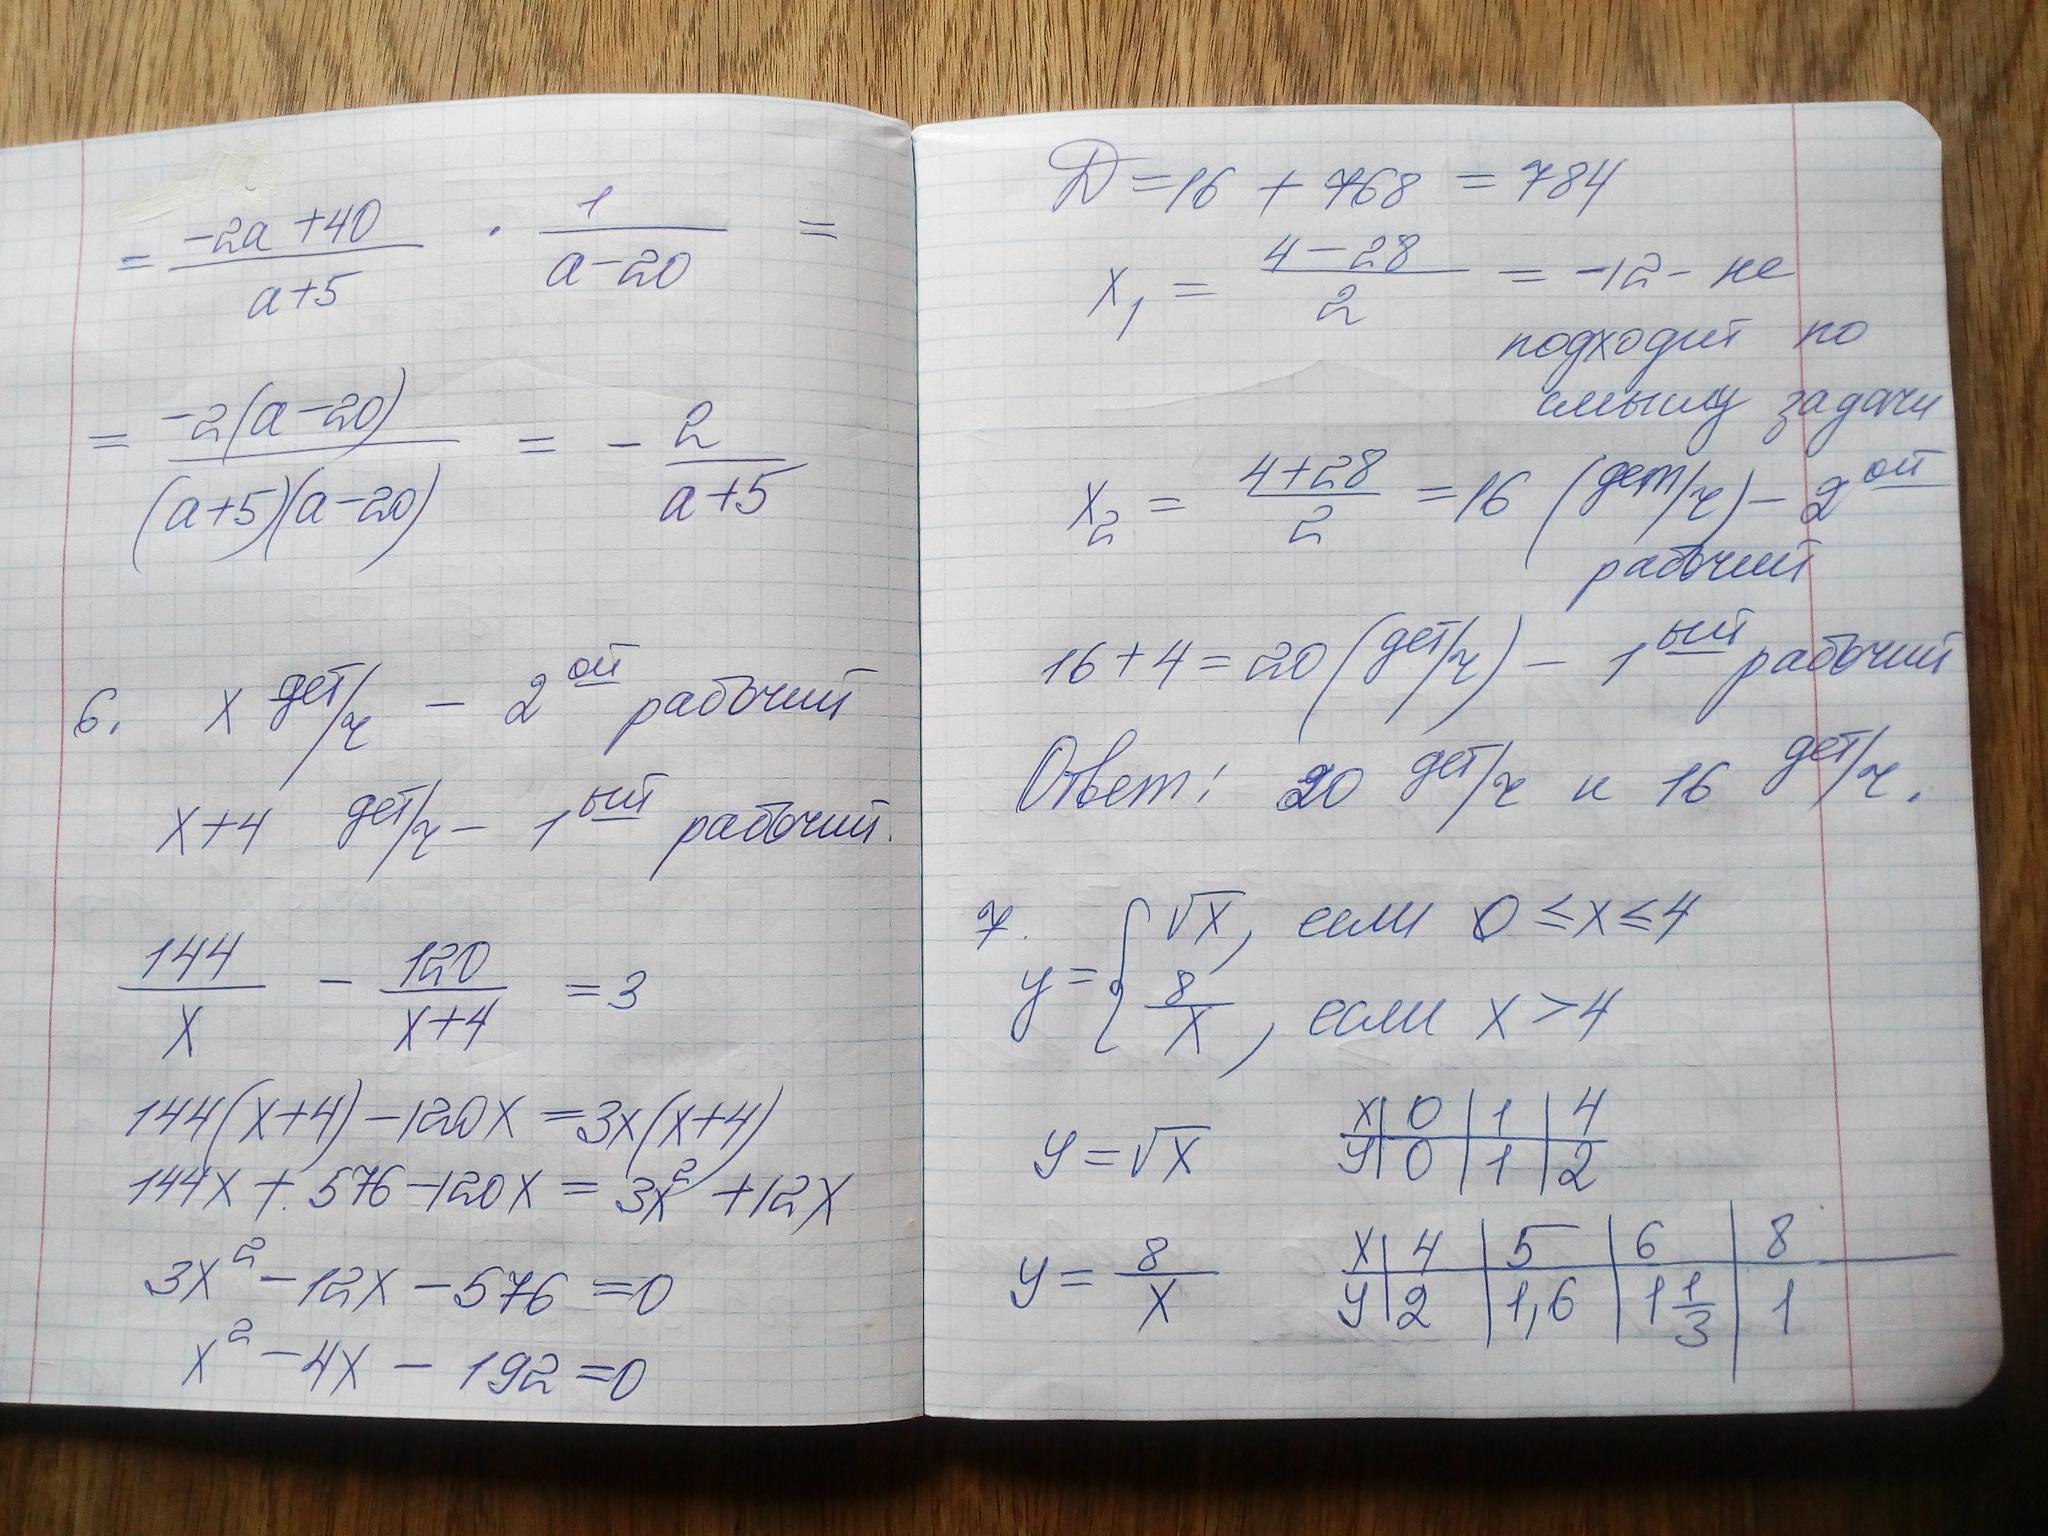 = (-2a + 40)/(a+5) · 1/(a-20) =
= (-2(a-20))/((a+5)(a-20)) = - 2/(a+5)
6. x дет/ч – 2ой рабочий
x+4 дет/ч – 1ый рабочий.
144/x - 120/(x+4) = 3
144(x+4) - 120x = 3x(x+4)
144x + 576 - 120x = 3x² + 12x
3x² - 12x - 576 = 0
x² - 4x - 192 = 0
D = 16 + 768 = 784
x₁ = (4 - 28)/2 = -12 - не
подходит по
смыслу задачи
x₂ = (4+28)/2 = 16 (дет/ч) – 2ой
рабочий
16 + 4 = 20 (дет/ч) – 1ый рабочий
Ответ: 20 дет/ч и 16 дет/ч.
7.
y = { √x, если 0 ≤ x ≤ 4
8/x, если x > 4
y = √x x | 0 | 1 | 4
y | 0 | 1 | 2
y = 8/x x | 4 | 5 | 6 | 8
y | 2 | 1,6 | 1 1/3 | 1